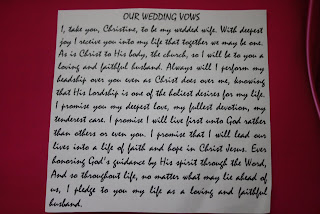 OUR WEDDING VOWS
I, take you, Christine, to be my wedded wife. With deepest
joy I receive you into my life that together we may be one.
As is Christ to His body, the church, so I will be to you a
loving and faithful husband. Always will I perform my
headship over you even as Christ does over me, knowing
that His Lordship is one of the holiest desires for my life.
I promise you my deepest love, my fullest devotion, my
tenderest care. I promise I will live first unto God rather
than others or even you. I promise that I will lead our
lives into a life of faith and hope in Christ Jesus. Ever
honoring God's guidance by His spirit through the Word,
And so throughout life, no matter what may lie ahead of
us, I pledge to you my life as a loving and faithful
husband.